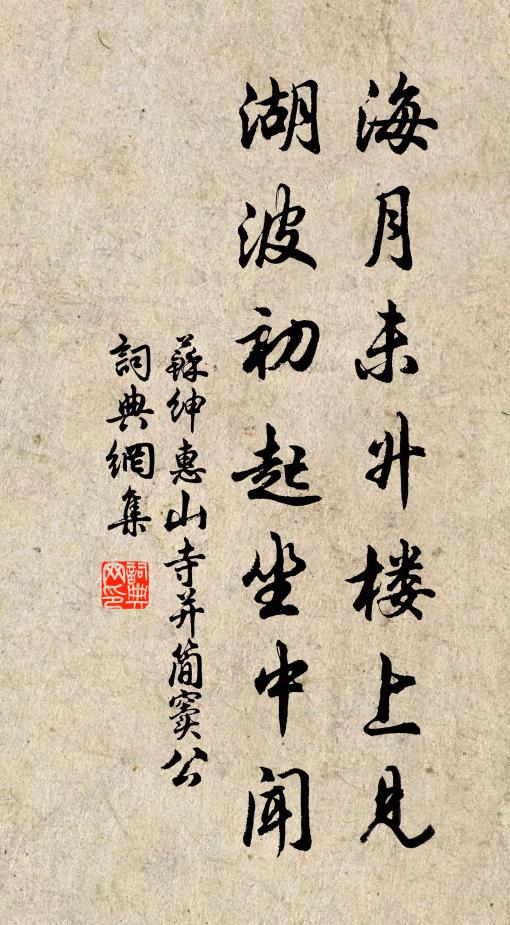 海月未升楼上見
湖波初起坐中聞
蘇紳惠山寺并簡竇公
詞典網集
詞典网印